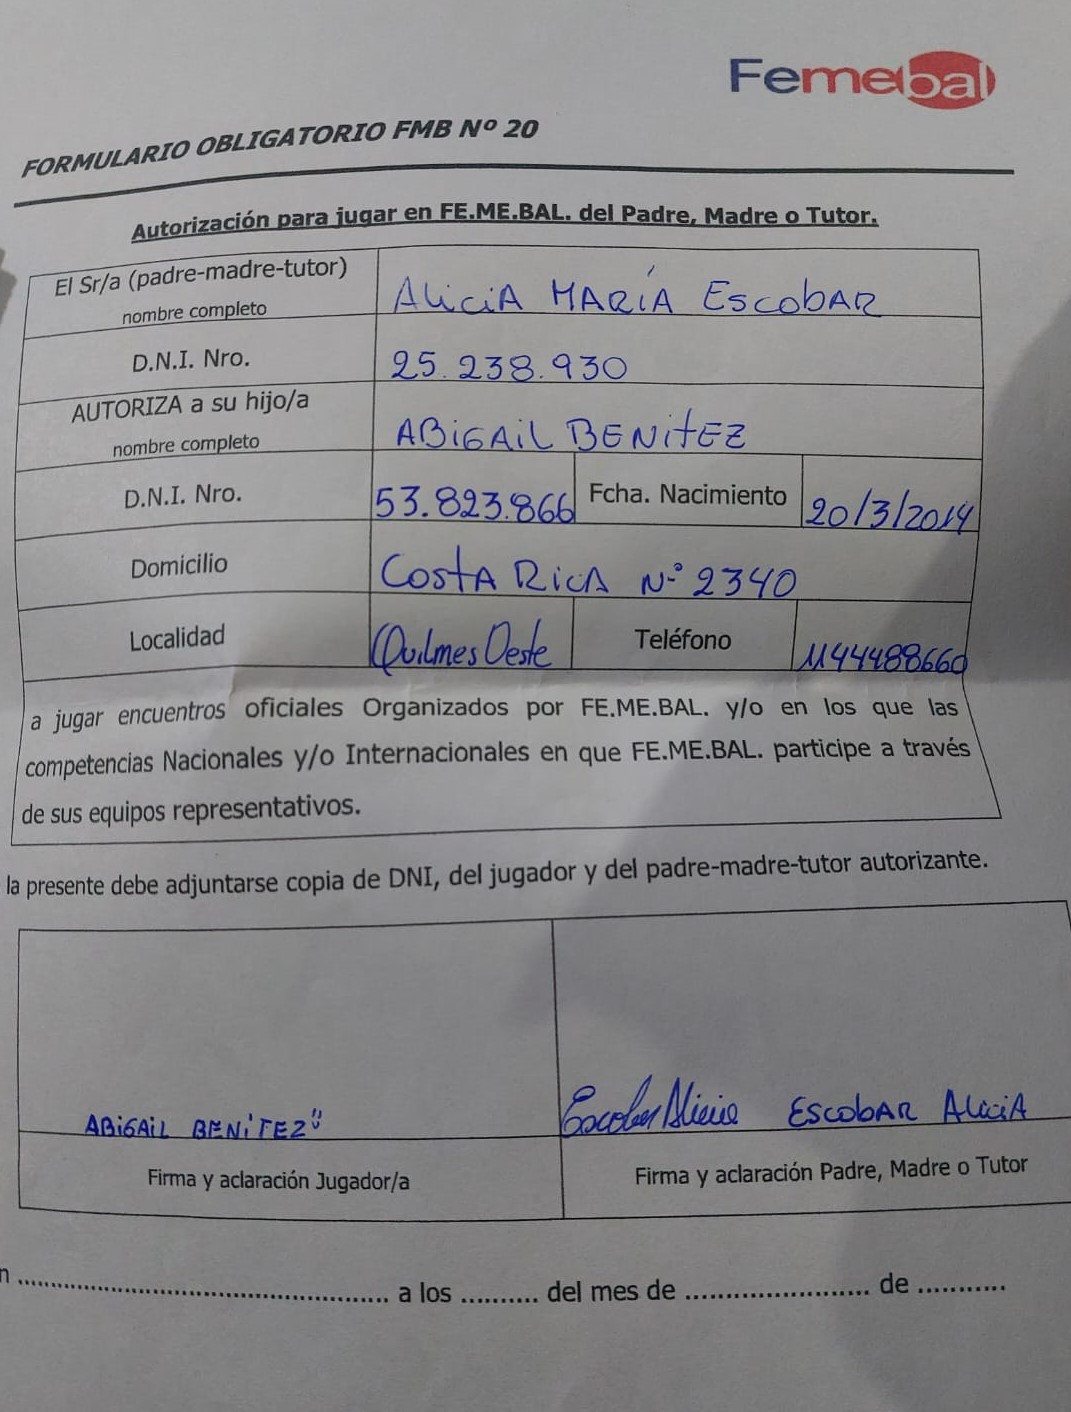 Femebal
FORMULARIO OBLIGATORIO FMB Nº 20
Autorización para jugar en FE.ME.BAL. del Padre, Madre o Tutor.
El Sr/a (padre-madre-tutor)
nombre completo
AliciA MARÍA EscobAR
D.N.I. Nro.
25.238.930
AUTORIZA a su hijo/a
nombre completo
ABiGAiL BENitEZ
D.N.I. Nro.
53.823.866
Fcha. Nacimiento
20/3/2014
Domicilio
CostA RicA Nº 2340
Localidad
Quilmes Oeste
Teléfono
1144488660
a jugar encuentros oficiales Organizados por FE.ME.BAL. y/o en los que las
competencias Nacionales y/o Internacionales en que FE.ME.BAL. participe a través
de sus equipos representativos.
la presente debe adjuntarse copia de DNI, del jugador y del padre-madre-tutor autorizante.
ABiGAiL BENiTEZ
Escobar Alicia ESCobAR AliciA
Firma y aclaración Jugador/a
Firma y aclaración Padre, Madre o Tutor
n .................................................. a los .......... del mes de ........................ de ...........